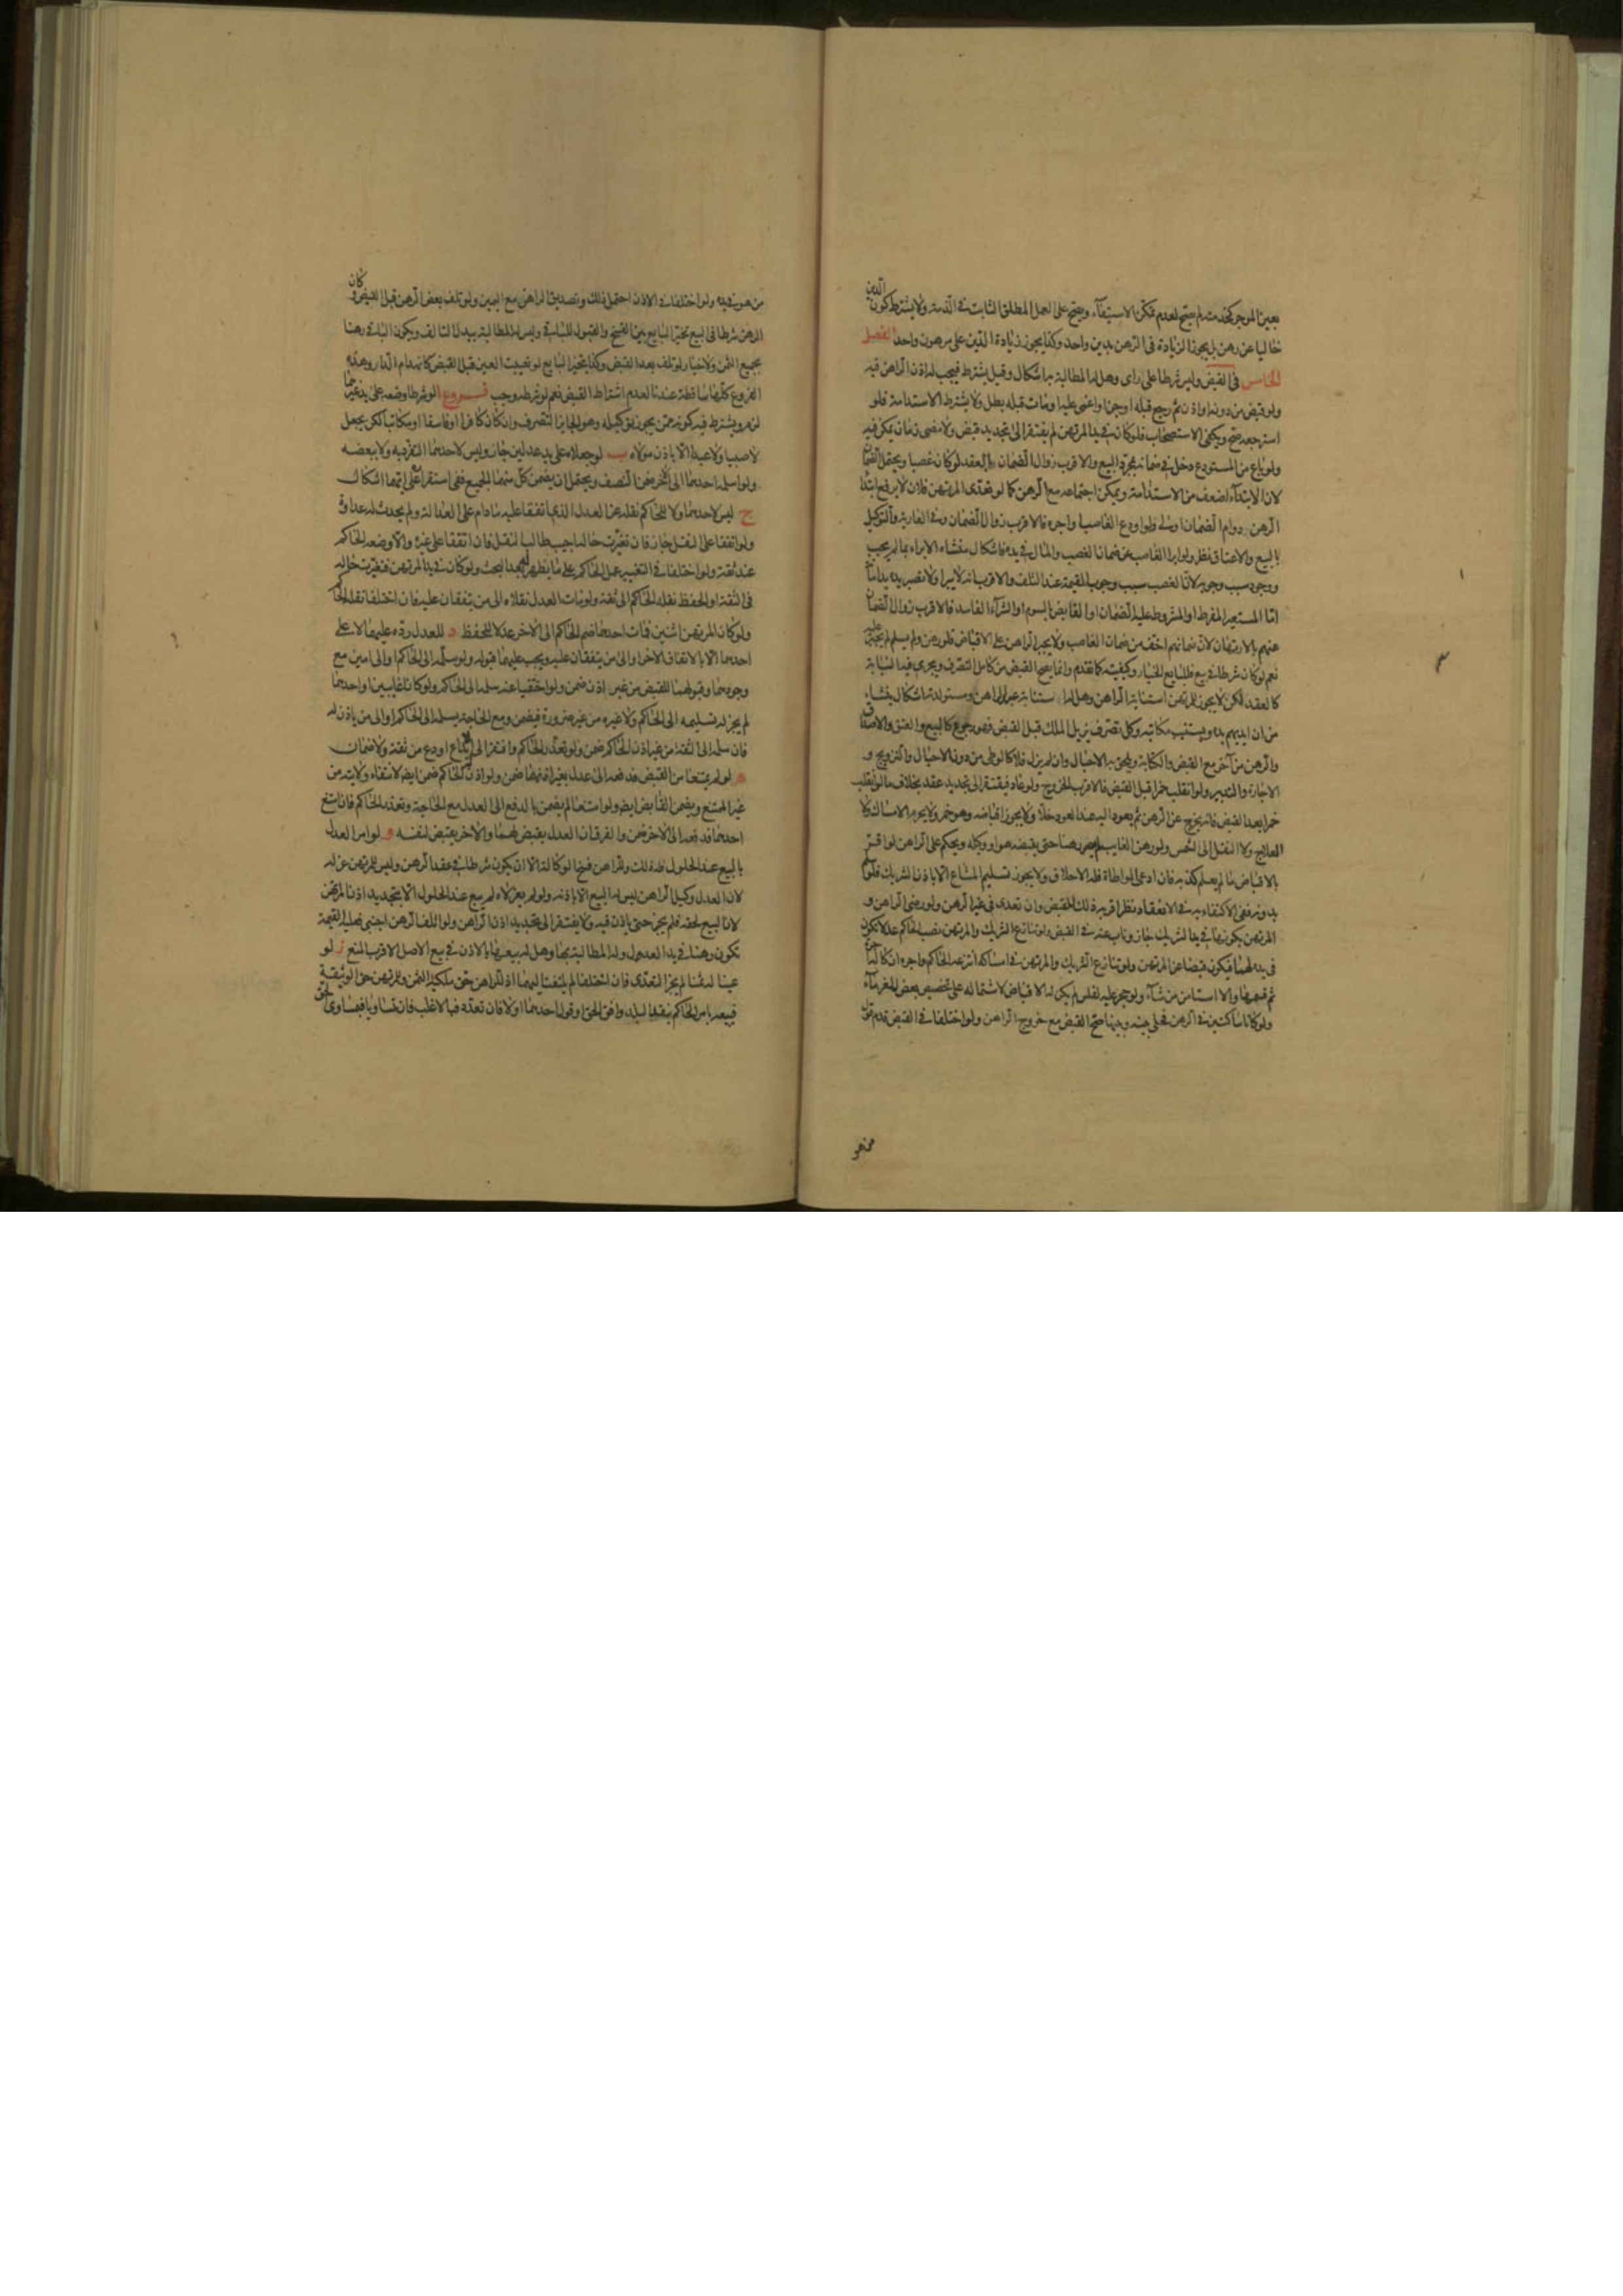 بعين الموجر كخدمته لم يصح لعدم تمكن الاستيفآء ويصح على العمل المطلق الثابت في الذمة ولا يشترط كون الدين
خاليا عن رهن بل يجوز الزيادة في الرهن بدين واحد وكذا يجوز زيادة الدين على مرهون واحد الفصل
الخامس في القبض وليس شرطا على راى وهل له المطالبة به اشكال وقيل يشترط فيجب له اذن الراهن فيه
ولو قبض من دونه او اذن ثم رجع قبله او جن او اغمى عليه او مات قبله بطل ولا يشترط الاستدامة فلو
استرجعه صح ويكفى الاستصحاب فلو كان في يد المرتهن لم يفتقر الى تجديد قبض ولا مضى زمان يمكن فيه
ولو باع من المستودع دخل في ضمانه بمجرد البيع والاقرب زوال الضمان بالعقد لو كان غصبا ويحتمل الضمان
لان الابتدآء اضعف من الاستدامة ويمكن اجتماعه مع الرهن كما لو تعدى المرتهن فلان لا يرفع ابتدا
الرهن دوام الضمان اولى ولو اودع الغاصب او اجره فالاقرب زوال الضمان وفي العارية والتوكيل
بالبيع والاعتاق نظر ولو ابرا الغاصب عن ضمان الغصب والمال في يده فاشكال منشاه الابراء مما لم يجب
ووجود سبب وجوبه لان الغصب سبب وجوب القيمة عند التلف والاقرب انه لا يبرا ولا تصير يده يد امانة
اما المستعير المفرط او المشروط عليه الضمان او القابض بالسوم او الشرآء الفاسد فالاقرب زوال الضمان
عنهم بالارتهان لان ضمانهم اخف من ضمان الغاصب ولا يجبر الراهن على الاقباض فلو رهن ولم يسلم لم يجبر عليه
نعم لو كان شرطا في بيع فللبايع الخيار وكيفيته كما تقدم وانما يصح القبض من كامل التصرف ويجرى فيه النيابة
كالعقد لكن لا يجوز للمرتهن استنابة الراهن وهل له استنابة عبد الراهن ومستولدته اشكال ينشاء
من ان ايديهم يده ويستنيب مكاتبه وكل تصرف يزيل الملك قبل القبض فهو رجوع كالبيع والعتق والاصداق
والرهن من آخر مع القبض والكتابة ويلحق به الاحبال وان لم يزل فلا كالوطى من دون الاحبال والتزويج و
الاجارة والتدبير ولو انقلب خمرا قبل القبض فالاقرب الخروج ولو عاد فيفتقر الى تجديد عقد بخلاف ما لو انقلب
خمرا بعد القبض فانه يخرج عن الرهن ثم يعود اليه عند العود خلا ولا يجوز اقباضه وهو خمر ولا يحرم الامساك ولا
العلاج ولا النقل الى الشمس ولو رهن الغايب لم يصر رهنا حتى يقبضه هو او وكيله ويحكم على الراهن لو اقر
بالاقباض ما لم يعلم كذبه فان ادعى المواطاة فله الاحلاف ولا يجوز تسليم المشاع الا باذن الشريك فلو سلم
بدونه ففى الاكتفاء به في الانعقاد نظر اقربه ذلك للقبض وان تعدى في غير الرهن ولو رضى الراهن و
المرتهن بكونها في يد الشريك جاز وناب عنه في القبض ولو تنازع الشريك والمرتهن نصب الحاكم عدلا يكون
في يده لهما فيكون قبضا عن المرتهن ولو تنازع الشريك والمرتهن في امساكه انتزعه الحاكم واجره ان كان له اجرة
ثم قسمها والا استامن من شآء ولو حجر عليه لفلس لم يكن له الاقباض لاشتماله على تخصيص بعض الغرمآء
ولو كانا ساكنين في الرهن فخلى بينه وبينها صح القبض مع خروج الراهن ولو اختلفا في القبض قدم قول
من هو
من هو في يده ولو اختلفا في الاذن احتمل ذلك وتصديق الراهن مع اليمين ولو تلف بعض الرهن قبل القبض وكان
الرهن شرطا في البيع تخير البايع بين الفسخ والقبول للباقى وليس له المطالبة ببدل التالف ويكون الباقى رهنا
بجميع الثمن ولا خيار لو تلف بعد القبض وكذا يتخير البايع لو تعيبت العين قبل القبض كانهدام الدار وهذه
الفروع كلها ساقطة عندنا لعدم اشتراط القبض نعم لو شرطه وجب فروع ا لو شرطا وضعه على يد غيرهما
لزم ويشترط فيه كونه ممن يجوز توكيله وهو الجايز التصرف وان كان كافرا او فاسقا او مكاتبا لكن بجعل
لا صبيا ولا عبدا الا باذن مولاه ب لو جعلاه على يد عدلين جاز وليس لاحدهما التفرد به ولا ببعضه
ولو سلمه احدهما الى الآخر ضمن النصف ويحتمل ان يضمن كل منهما الجميع ففى استقراره على ايهما اشكال
ج ليس لاحدهما ولا للحاكم نقله عن العدل الذى اتفقا عليه ما دام على العدالة ولم يحدث له عداوة
ولو اتفقا على النقل جاز فان تغيرت حاله اجيب طالب النقل فان اتفقا على غيره والا وضعه الحاكم
عند ثقة ولو اختلفا في التغيير عمل الحاكم على ما يظهر له بعد البحث ولو كان في يد المرتهن فتغيرت حاله
في الثقة او الحفظ نقله الحاكم الى ثقة ولو مات العدل نقلاه الى من يتفقان عليه فان اختلفا نقله الحاكم
ولو كان المرتهن اثنين فمات احدهما ضم الحاكم الى الآخر عدلا للحفظ د للعدل رده عليهما لا على
احدهما الا بالاتفاق الآخر او الى من يتفقان عليه ويجب عليهما قبوله ولو سلمه الى الحاكم او الى امين مع
وجودهما وقبولهما للقبض من غير اذن ضمن ولو اختفيا عنه سلمه الى الحاكم ولو كانا غايبين او احدهما
لم يجز له تسليمه الى الحاكم ولا غيره من غير ضرورة فيضمن ومع الحاجة يسلمه الى الحاكم او الى من ياذن له
فان سلمه الى الثقة من غير اذن الحاكم ضمن ولو تعذر الحاكم وافتقر الى الايداع اودع من ثقة ولا ضمان
ه لو لم يمتنعا من القبض فدفعه الى عدل بغير اذنهما ضمن ولو اذن الحاكم ضمن ايضا لانتفاء ولايته من
غير الممتنع ويضمن القابض ايضا ولو امتنعا لم يضمن بالدفع الى العدل مع الحاجة وتعذر الحاكم فان امتنع
احدهما فدفعه الى الآخر ضمن والفرق ان العدل يقبض لهما والآخر يقبض لنفسه و لو امر العدل
بالبيع عند الحلول فله ذلك وللراهن فسخ الوكالة الا ان يكون شرطها في عقد الرهن وليس للمرتهن عزله
لان العدل وكيل الراهن ليس له البيع الا باذنه ولو لم يعزلاه لم يبع عند الحلول الا بتجديد اذن المرتهن
لان البيع لحقه فلم يجز حتى ياذن فيه ولا يفتقر الى تجديد اذن الراهن ولو اتلف الرهن اجنبى فعليه القيمة
تكون رهنا في يد العدل وله المطالبة بها وهل له بيعها بالاذن في بيع الاصل الاقرب المنع ز لو
عينا له ثمنا لم يجز التعدى فان اختلفا لم يلتفت اليهما اذ للراهن حق ملكية الثمن وللمرتهن حق الوثيقة
فيبيعه بامر الحاكم بنقد البلد وافق الحق او قول احدهما او لا فان تعدد فبالاغلب فان تساويا فبمساوى الحق